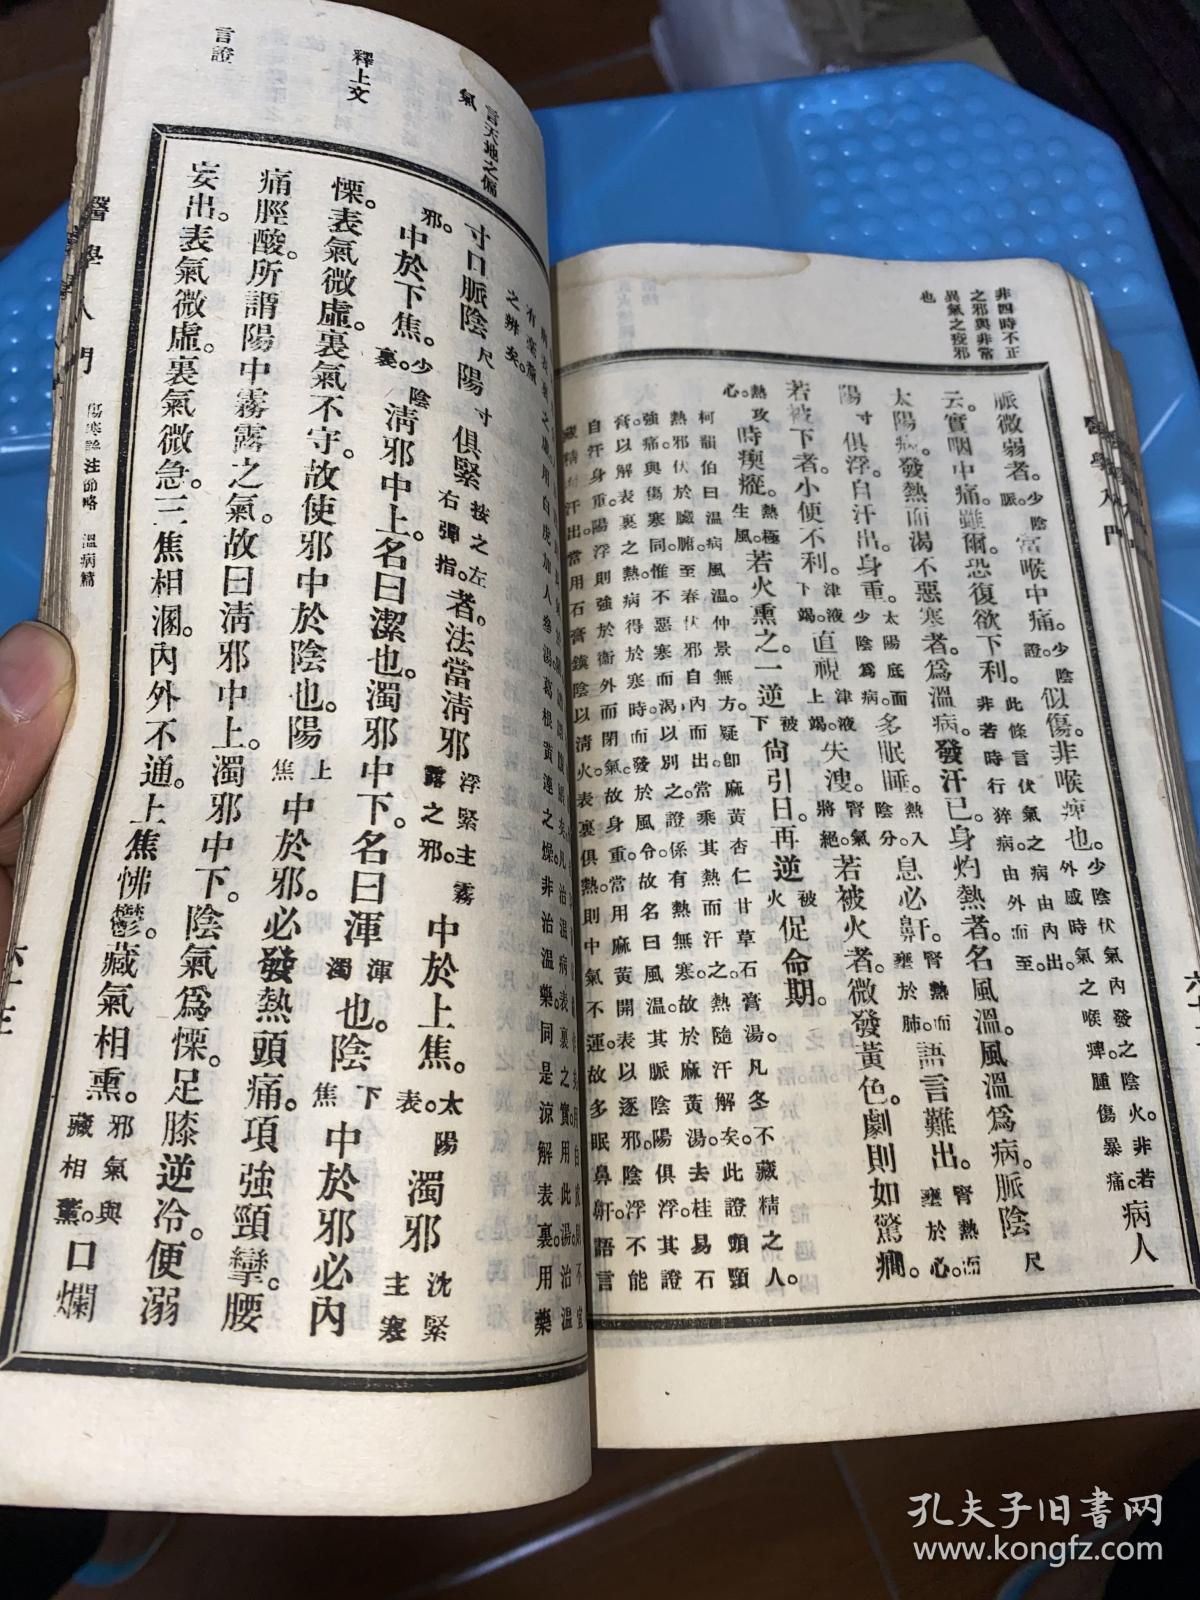 非四時不正
之邪與非常
異氣之疫邪
也
脈微弱者。少陰脈。當喉中痛。少陰證。似傷。非喉痺也。少陰伏氣內發之陰火。非若外感時氣之喉痺腫傷暴痛。病人
云。實咽中痛。雖爾。恐復欲下利。此條言伏氣之病由內出。非若時行猝病。由外而至。
太陽病。發熱而渴不惡寒者。爲溫病。發汗已。身灼熱者。名風溫。風溫爲病。脈陰尺
陽寸俱浮。自汗出。身重。太陽底面少陰爲病。多眠睡。熱入陰分。息必鼾。腎熱而壅於肺。語言難出。腎熱而壅於心。
若被下者。小便不利。津液下竭。直視。津液上竭。失溲。腎氣將絕。若被火者。微發黃色。劇則如驚癎。
熱攻心。時瘈瘲。熱極生風。若火熏之。一逆被下尙引日。再逆被火促命期。
柯韻伯曰。溫病風溫。仲景無方。疑卽麻黃杏仁甘草石膏湯。凡冬不藏精之人。
熱邪伏於臟腑。至春伏邪自內而出。當乘其熱而汗之。熱隨汗解矣。此證頭頸
強痛。與傷寒同。惟不惡寒而渴以別之。證係有熱無寒。故於麻黃湯去桂易石
膏。以解表裏之熱。病得於寒時。而發於風令。故名曰風溫。其脈陰陽俱浮。其證
自汗身重。陽浮則強於衛外而閉氣。故身重。當用麻黃開表以逐邪。陰浮不能
藏精而汗出。當用石膏鎮陰以清火。表裏俱熱。則中氣不運。故多眠鼻鼾。語言
醫學入門
言天地之偏
氣
釋上文
言證
之辨矣。
寸口脈陰尺陽寸俱緊按之左右彈指。者。法當淸邪浮緊主霧露之邪。中於上焦。太陽表。濁邪沈緊主寒
邪。中於下焦。少陰裏。淸邪中上。名曰潔也。濁邪中下。名曰渾渾濁也。陰下焦中於邪必內
慄。表氣微虛。裏氣不守。故使邪中於陰也。陽上焦中於邪。必發熱頭痛。項強頸攣。腰
痛脛酸。所謂陽中霧露之氣。故曰淸邪中上。濁邪中下。陰氣爲慄。足膝逆冷。便溺
妄出。表氣微虛。裏氣微急。三焦相溷。內外不通。上焦怫鬱。藏氣相熏。邪氣與藏相薰。口爛
醫學入門 傷寒論注節略 溫病篇
孔夫子旧书网
www.kongfz.com